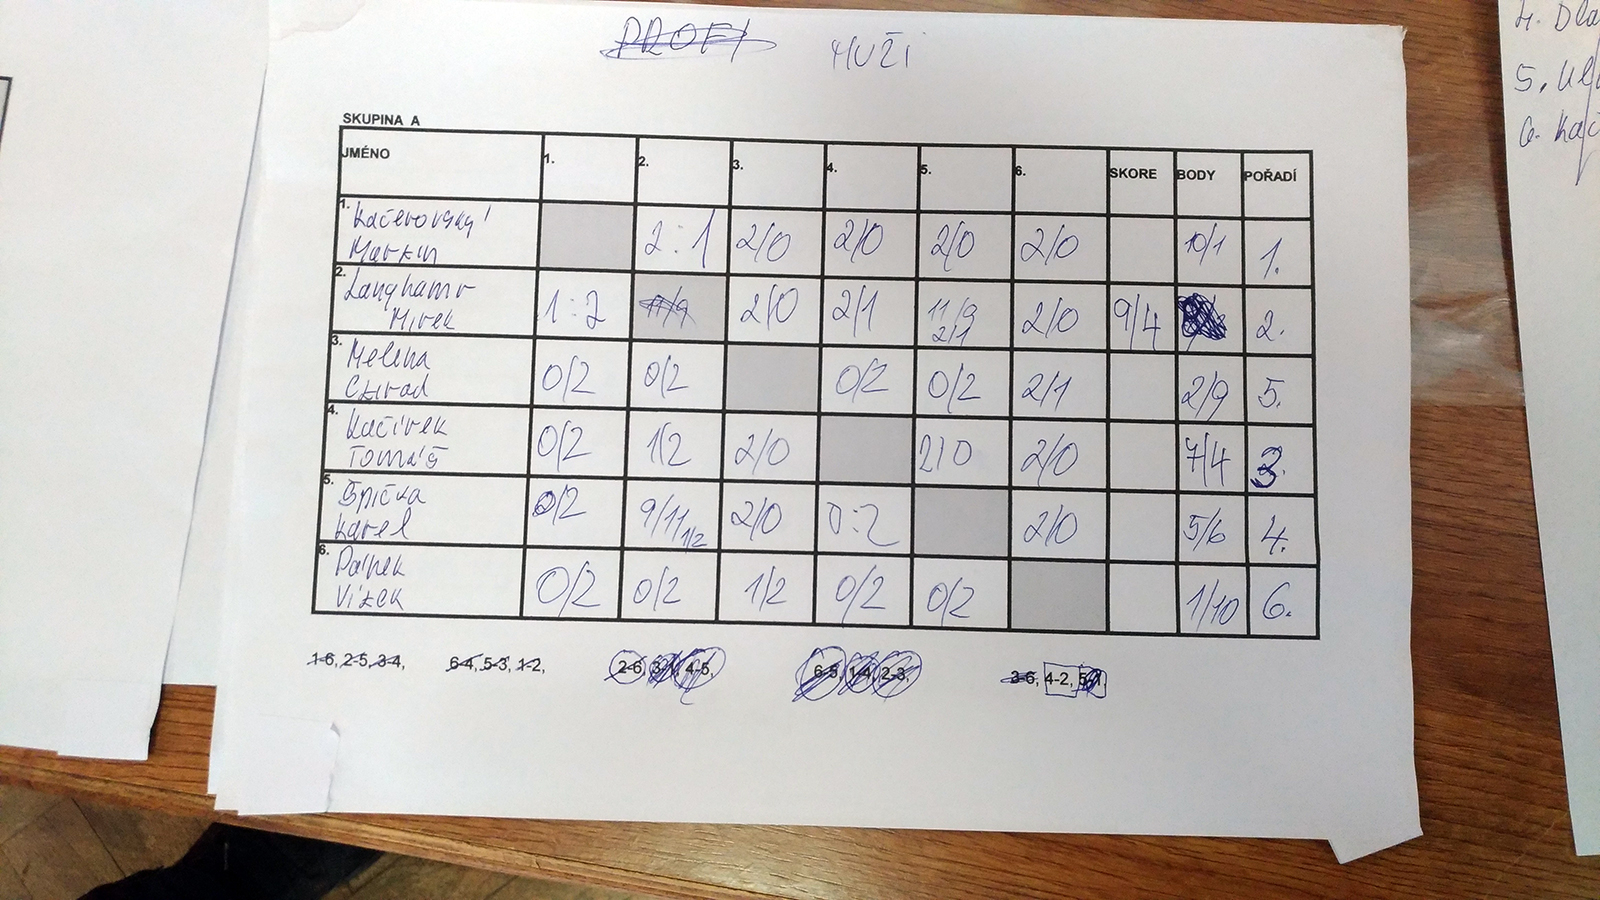 MUŽI
SKUPINA A
JMÉNO 1. 2. 3. 4. 5. 6. SKORE BODY POŘADÍ
1. Kačerovský 2:1 2/0 2/0 2/0 2/0 10/1 1.
Martin
2. Langhamr 1:2 2/0 2/1 11/9 2/0 9/4 2.
Mirek 2/1
3. Melena 0/2 0/2 0/2 0/2 2/1 2/9 5.
Ctirad
4. Kačírek 0/2 1/2 2/0 2/0 2/0 7/4 3.
Tomáš
5. Špička 0/2 9/11 1/2 2/0 0:2 2/0 5/6 4.
Karel
6. 0/2 0/2 1/2 0/2 0/2 1/10 6.
Vítek
1-6, 2-5, 3-4, 6-4, 5-3, 1-2, 2-6, 3-1, 4-5, 6-5, 1-4, 2-3, 3-6, 4-2, 5-1
4.
5.
6.